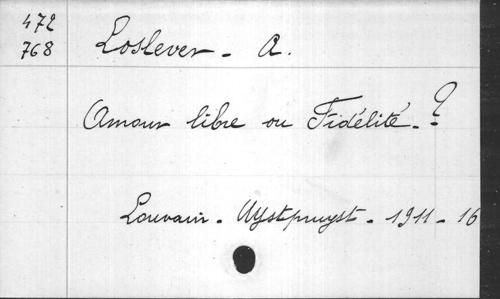 472
768
Loslever - A.
Amour libre ou Fidélité - ?
Louvain - Uystpruyst - 1911 - 16